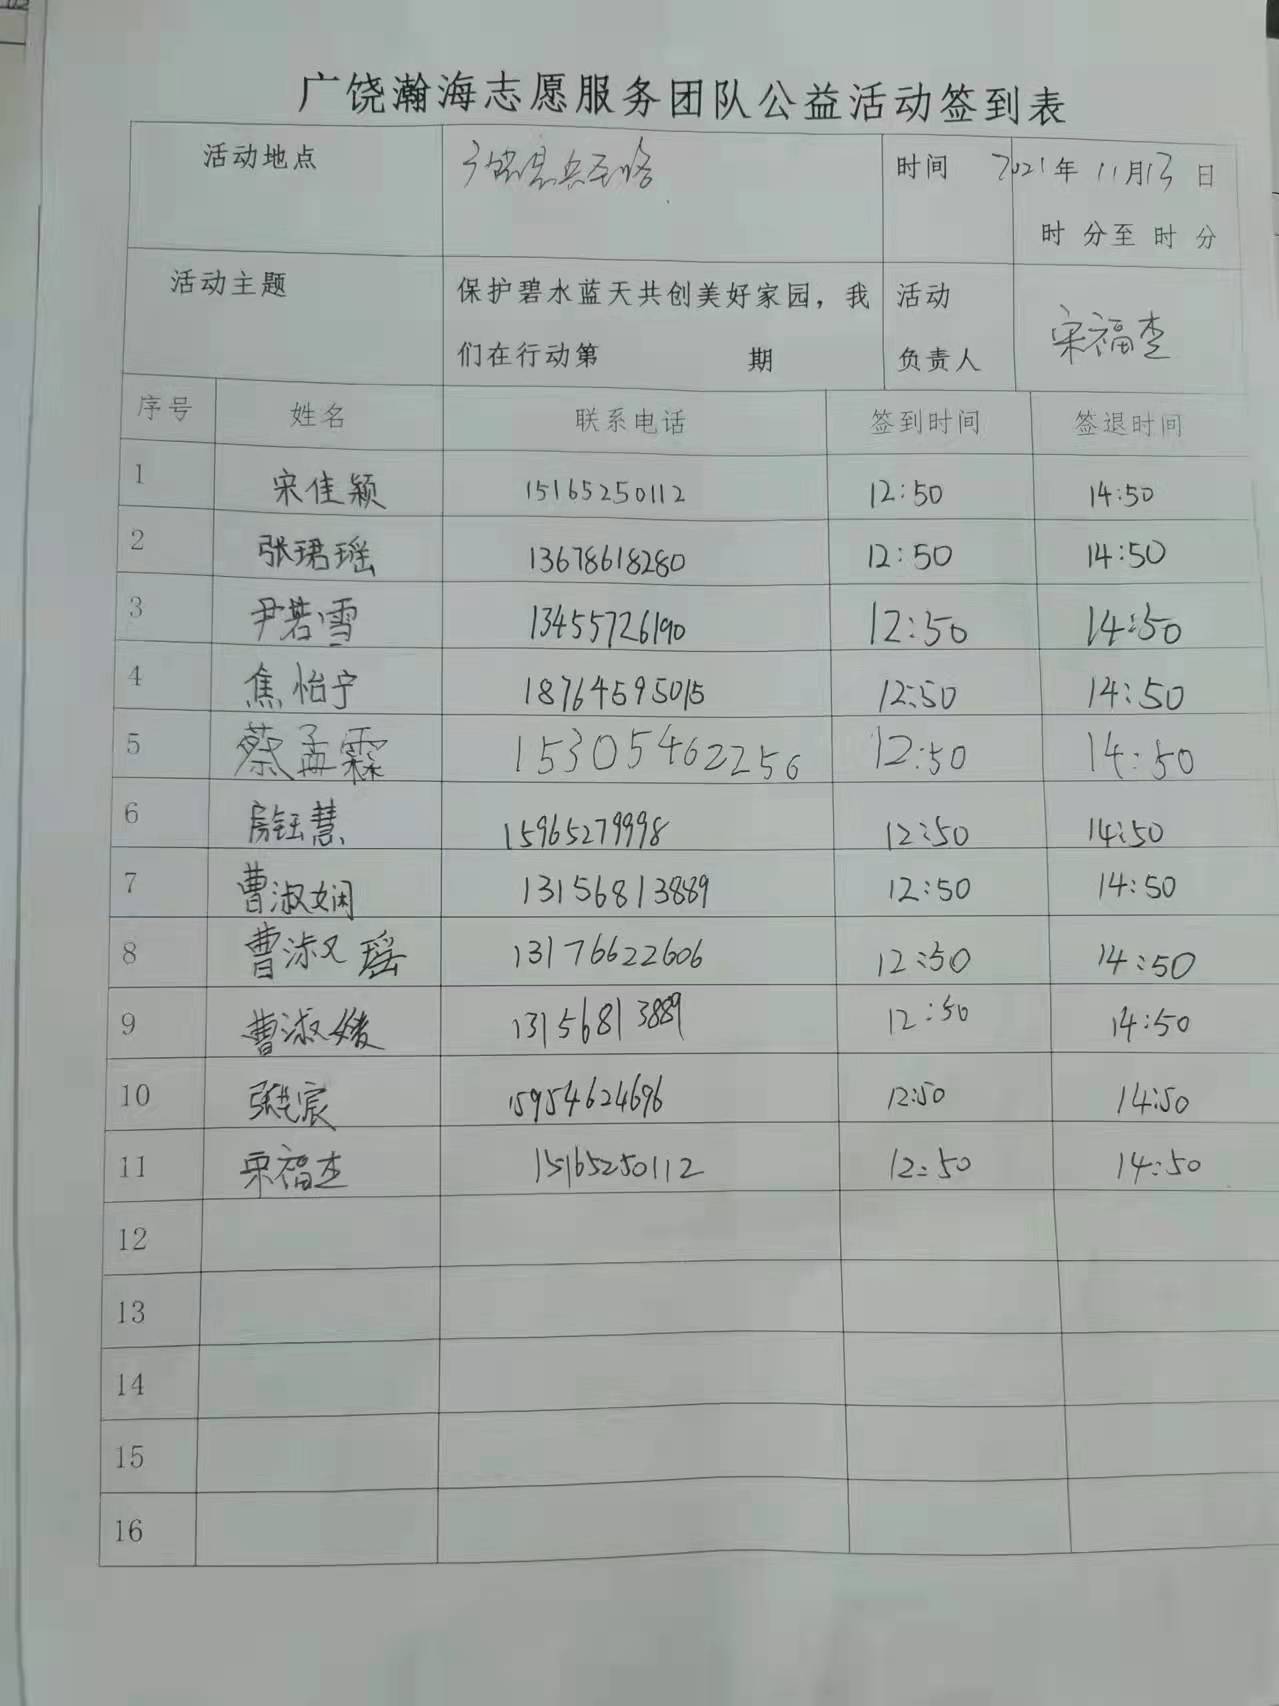 广饶瀚海志愿服务团队公益活动签到表
活动地点 广饶县兵圣路 时间 2021年 11月13日
时 分至 时 分
活动主题 保护碧水蓝天共创美好家园，我 活动
们在行动第 期 负责人 宋福杰
序号 姓名 联系电话 签到时间 签退时间
1 宋佳颖 15165250112 12:50 14:50
2 张珺瑶 13678618280 12:50 14:50
3 尹若雪 13455726190 12:50 14:50
4 焦怡宁 18764595015 12:50 14:50
5 蔡孟霖 15305462256 12:50 14:50
6 房钰慧 15965279998 12:50 14:50
7 曹淑娴 13156813889 12:50 14:50
8 曹淑瑶 13176622606 12:50 14:50
9 曹淑媛 13156813889 12:50 14:50
10 张宸 15954624696 12:50 14:50
11 宋福杰 15165250112 12:50 14:50
12
13
14
15
16